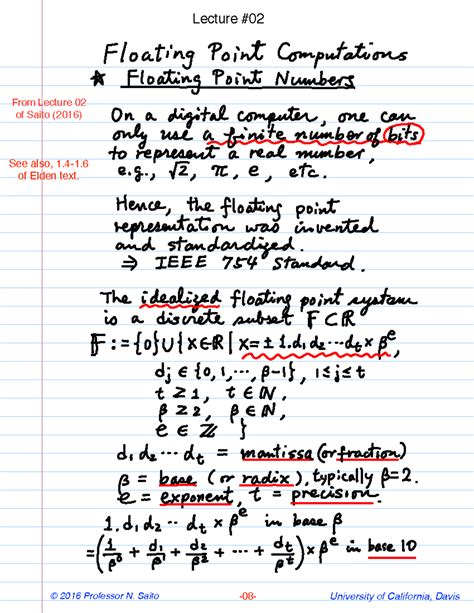 Lecture #02
Floating Point Computations
* Floating Point Numbers
From Lecture 02
of Saito (2016)
On a digital computer, one can
only use a finite number of bits
to represent a real number,
e.g., √2, π, e, etc.
See also, 1.4-1.6
of Elden text.
Hence, the floating point
representation was invented
and standardized.
⇒ IEEE 754 Standard.
The idealized floating point system
is a discrete subset F ⊂ ℝ
F := {0} ∪ { x ∈ ℝ | x = ± 1.d₁d₂⋯dₜ × βᵉ,
dⱼ ∈ {0, 1, ⋯, β-1}, 1 ≤ j ≤ t
t ≥ 1, t ∈ ℕ,
β ≥ 2, β ∈ ℕ,
e ∈ ℤ }
d₁ d₂ ⋯ dₜ = mantissa (or fraction)
β = base (or radix), typically β=2.
e = exponent, t = precision.
1.d₁d₂⋯dₜ × βᵉ in base β
= (1/β⁰ + d₁/β¹ + d₂/β² + ⋯ + dₜ/βᵗ) × βᵉ in base 10
© 2016 Professor N. Saito
-08-
University of California, Davis